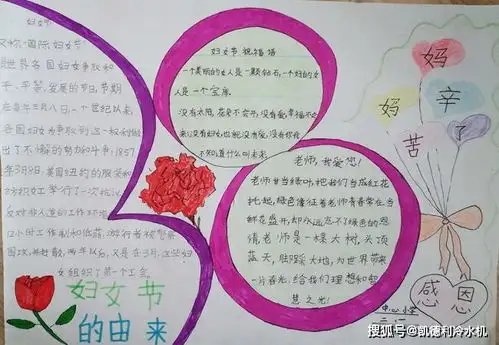 妇女节
又称"国际妇女节"
是世界各国妇女争取和
平、平等、发展的节日,节期
在每年三月八日,一个世纪以来,
各国妇女争取到这一权利做
出了不懈的努力和斗争:1857
年3月8日,美国纽约的服装和
纺织女工举行了一次抗议,
反对非人道的工作环境,
12小时工作制和低薪,游行者被警察
围攻,并赶散,两年以后,又是在3月,这些妇
女组织了第一个工会
妇女节
的由来
妇女节祝福语
一个美丽的女人是一颗钻石,一个好的女
人是一个宝库
没有太阳,花朵不会开,没有爱,幸福不会
来;没有妇女,也就没有爱,没有你我
不知道什么叫未来
老师,我爱您!
老师甘当绿叶,把我们当成红花
托起,绿色像征着老师青春常在,当
鲜花盛开,却永远忘不了绿色的恩
情,老师是一棵大树,头顶
蓝天,脚踩大地,为世界带来
一片春光,给我们理想和智
慧之光!
妈
妈
辛
苦
了
感恩
中心小学
二.一
搜狐号@凯德利冷水机